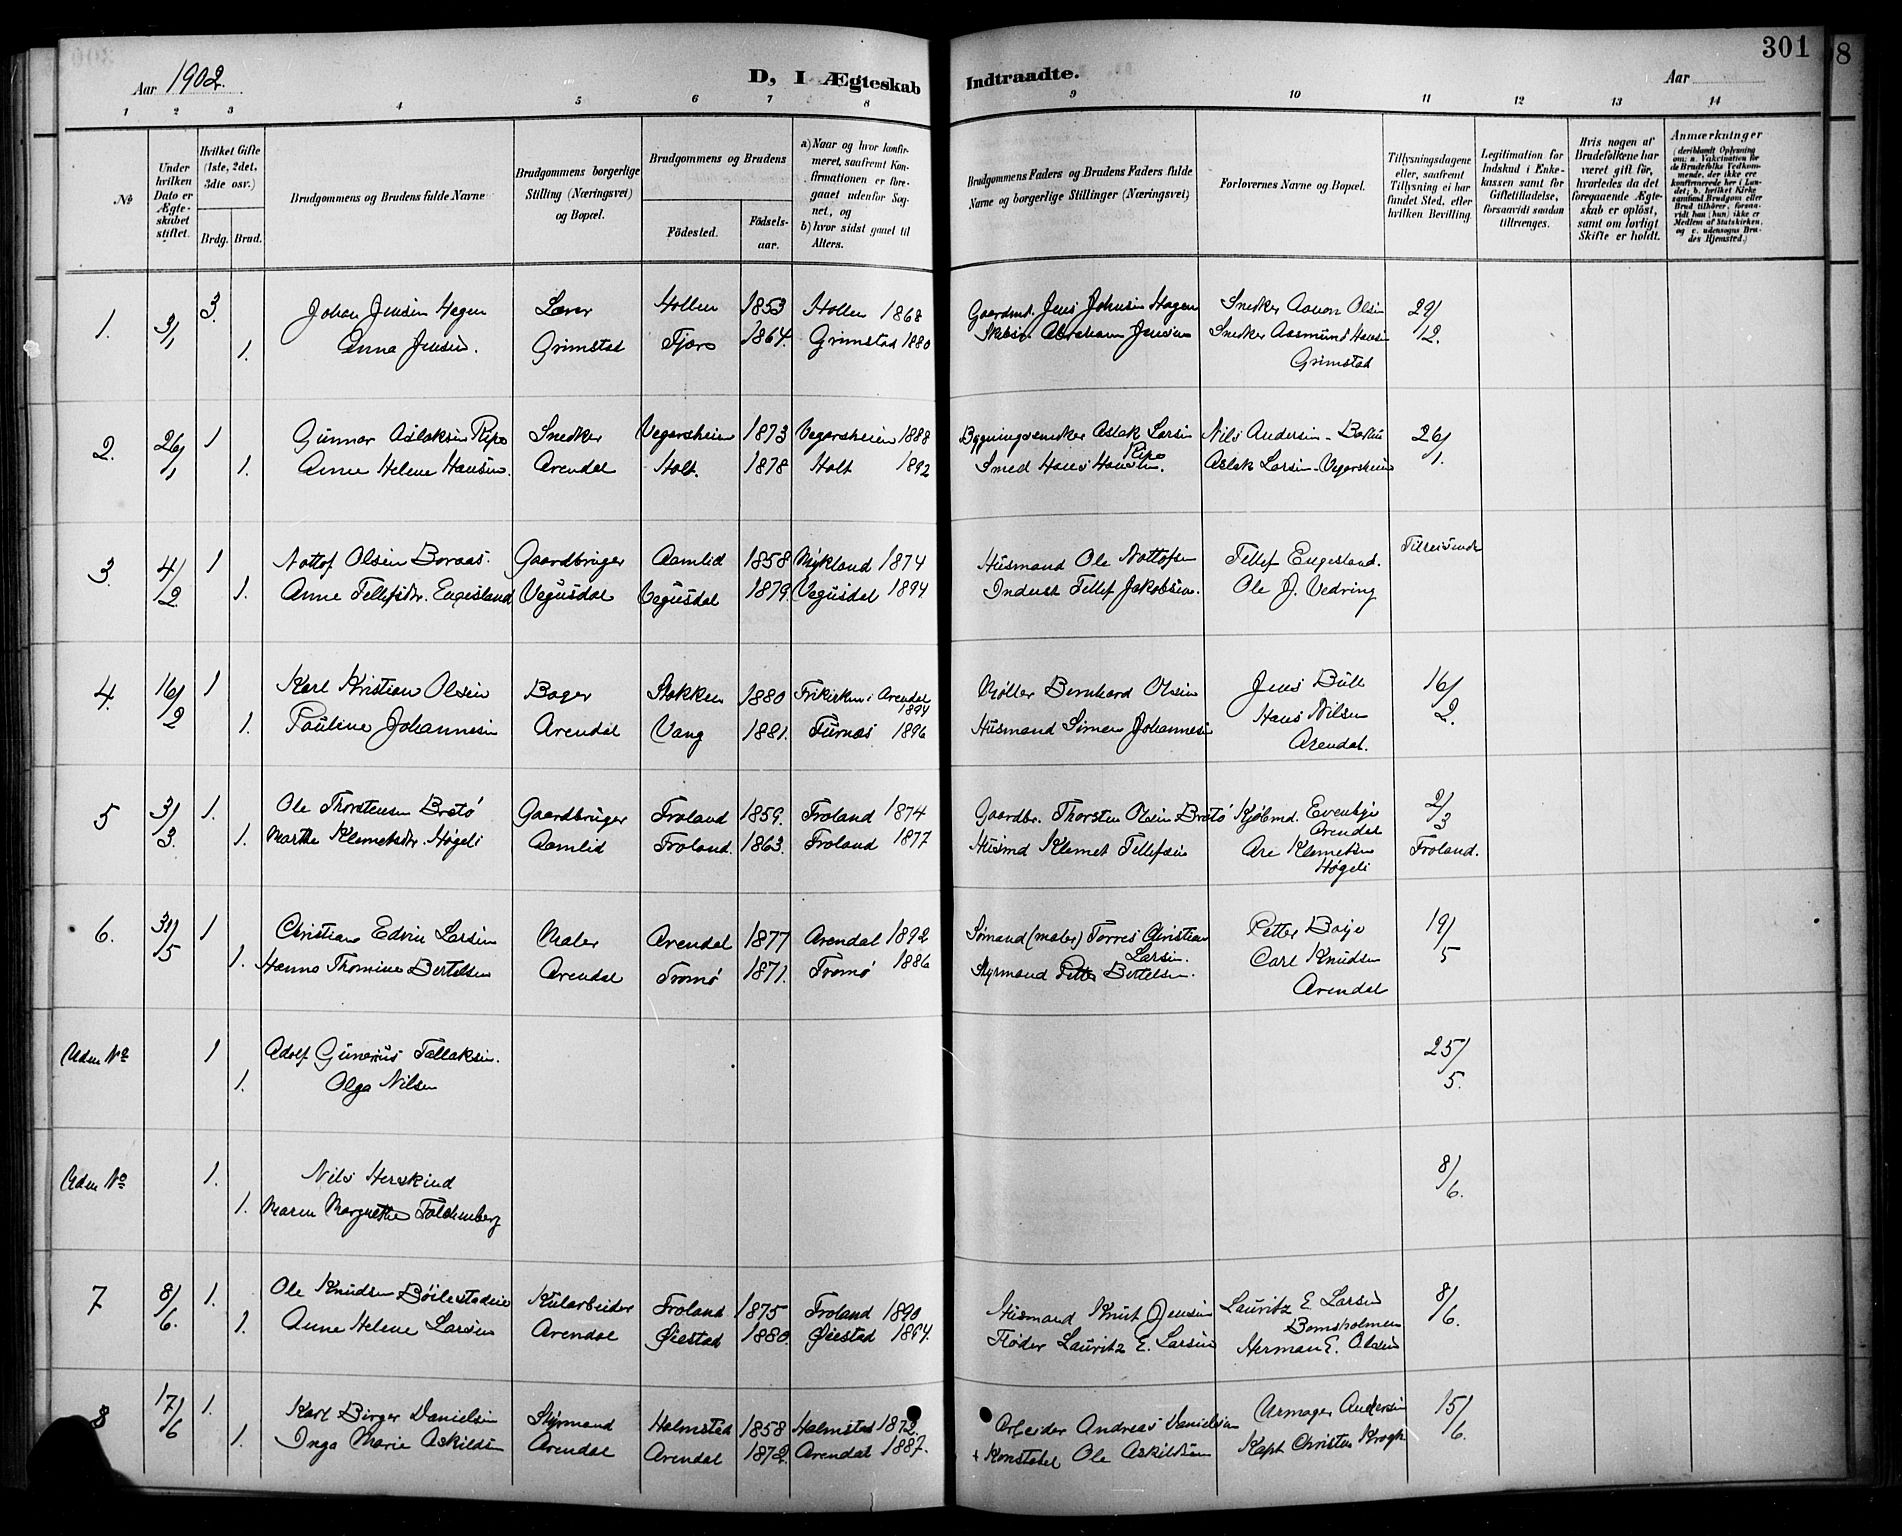 301
8
Aar 1902.
D, I Ægteskab Indtraadte.
Aar
1 2 3 4 5 6 7 8 9 10 11 12 13 14
№
Under hvilken Dato er Ægteskabet stiftet.
Hvilket Gifte (1ste, 2det, 3die osv.)
Brdg. Brud.
Brudgommens og Brudens fulde Navne
Brudgommens borgerlige Stilling (Næringsvei) og Bopæl.
Brudgommens og Brudens
Födested.
Födselsaar.
a) Naar og hvor konfirmeret, saafremt Konfirmationen er foregaaet udenfor Sognet, og
b) hvor sidst gaaet til Alters.
Brudgommens Faders og Brudens Faders fulde Navne og borgerlige Stillinger (Næringsvei)
Forlovernes Navne og Bopæl.
Tillysningsdagene eller, saafremt Tillysning ei har fundet Sted, efter hvilken Bevilling.
Legitimation for Indskud i Enkekassen samt for Giftetilladelse, forsaavidt saadan tiltrænges.
Hvis nogen af Brudefolkene har været gift før, hvorledes da det foregaaende Ægteskab er oplöst, samt om lovligt Skifte er holdt.
Anmærkninger (deriblandt Oplysning om: a. Vakcination for de Brudefolks Vedkommende, der ikke ere konfirmerede her i Landet; b. hvilket Kirkesamfund Brudgom eller Brud tilhører, forsaavidt han (hun) ikke er Medlem af Statskirken, og c. udensogns Brudes Hjemsted.)
1. 3/1 3. Johan Jensen Hagen Hollen 1853 Hollen 1868 Gaardmd. Jens Johnsen Hagen Snedker Aanon Olsen 29/12.
1. Anna Jensen. Grimstad Fjære 1864. Grimstad 1880 Abraham Jensen Snedker Aasmund Hansen
Grimstad
2. 26/1 1 Gunnar Aslaksen Ripe Snedker Vegarsheien 1873 Vegarsheien 1888 Bygningssnedker Aslak Larsen Ripe Nils Andersen 26/1.
1. Anne Helene Hansen. Arendal Holt. 1878 Holt 1892 Smed Hans Hansen. Aslak Larsen Vegarsheien
3. 4/2 1 Nottof Olsen Boraas. Gaardbruger Aamlid 1858 Mykland 1874 Husmand Ole Nottofsen Tellef Engesland. Tilreisende
1. Anne Tellefsdr. Engesland Vegusdal Vegusdal 1879. Vegusdal 1894 Inderst Tellef Jakobsen. Ole J. Vedring
4. 16/2 1 Karl Kristian Olsen Bager Stokken 1880 Frikirken i Arendal 1894 Møller Bernhard Olsen Jens Bull 16/2.
1. Pauline Johannesen Arendal Vang 1881. Furnæs 1896 Husmand Simen Johannesen Hans Nilsen
Arendal.
5 3/3. 1. Ole Thorstensen Bratø Gaardbruger Froland 1859. Froland 1874 Gaardbr. Thorsten Olsen Bratø Kjøbmd. Evenstje Arendal 2/3
1. Marthe Klemetsdr. Høgeli Aamlid Froland. 1863. Froland 1877 Husmd Klemet Tellefsen Are Klemetsen Høgeli Froland.
6. 31/5 1 Christian Edvin Larsen Maler Arendal 1877 Arendal 1892 Sømand (maler) Torres Christian Larsen. Petter Boije 19/5
1. Hanna Thomine Bertelsen Arendal Tromø 1871. Tromø 1886 Styrmand Petter Bertelsen. Carl Knudsen
Arendal
Uden № 1 Adolf Gunerius Tallaksen. 25/5.
1. Olga Nilsen
Uden № 1. Nils Herskind 8/6.
1. Maren Margrethe Falchenberg
7 8/6. 1. Ole Knudsen Bøilestadeie Kularbeider Froland 1875 Froland 1890 Husmand Knut Jensen Lauritz E. Larsen Bomsholmen 8/6.
1. Anne Helene Larsen Arendal Øiestad 1880. Øiestad 1894. Fløder Lauritz E. Larsen Herman E. Olsen
8 17/6 1. Karl Birger Danielsen Styrmand Halmstad 1858 Halmstad 1872. Arbeider Andreas Danielsen Urmager Andersen 15/6.
1. Inga Marie Askildsen Arendal Arendal 1872. Arendal 1887. Konstabel Ole Askildsen Kapt Christen Krogh